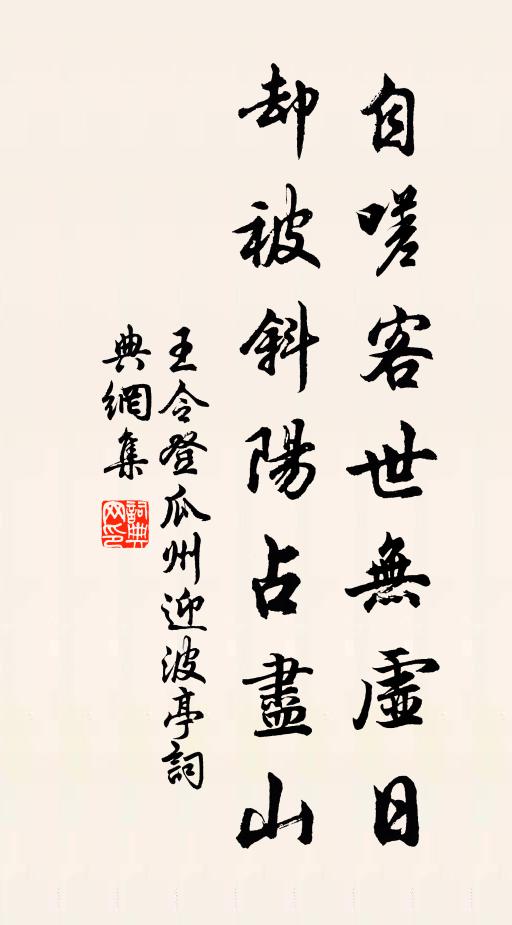 自嗟客世無虛日
却被斜陽占盡山
王令登瓜州迎波亭詞
典網集
詞典
网印